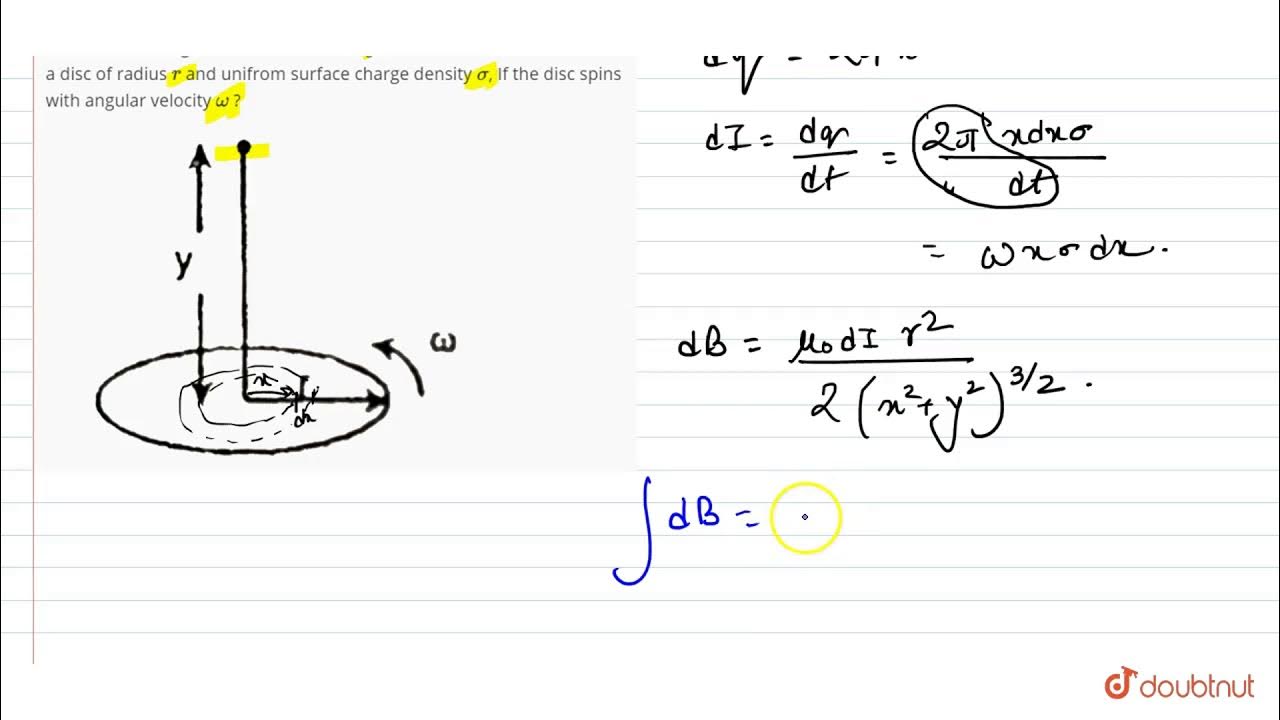 a disc of radius r and unifrom surface charge density σ, If the disc spins
with angular velocity ω ?
y
ω
x
dx
dI = dq/dt = 2π x dx σ / dt
= ω x σ dx .
dB = μ₀ dI r² / 2 (x² + y²)^3/2 .
∫ dB =
doubtnut